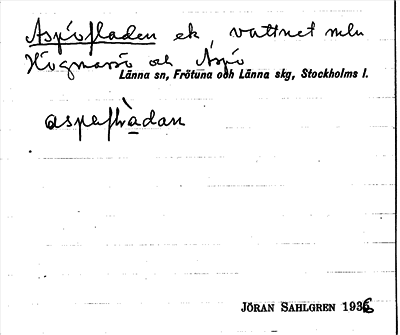 Aspöfladen ek, vattnet mln
Högmarsö och Aspö
Länna sn, Frötuna och Länna skg, Stockholms l.
aspəflàdan
JÖRAN SAHLGREN 1936